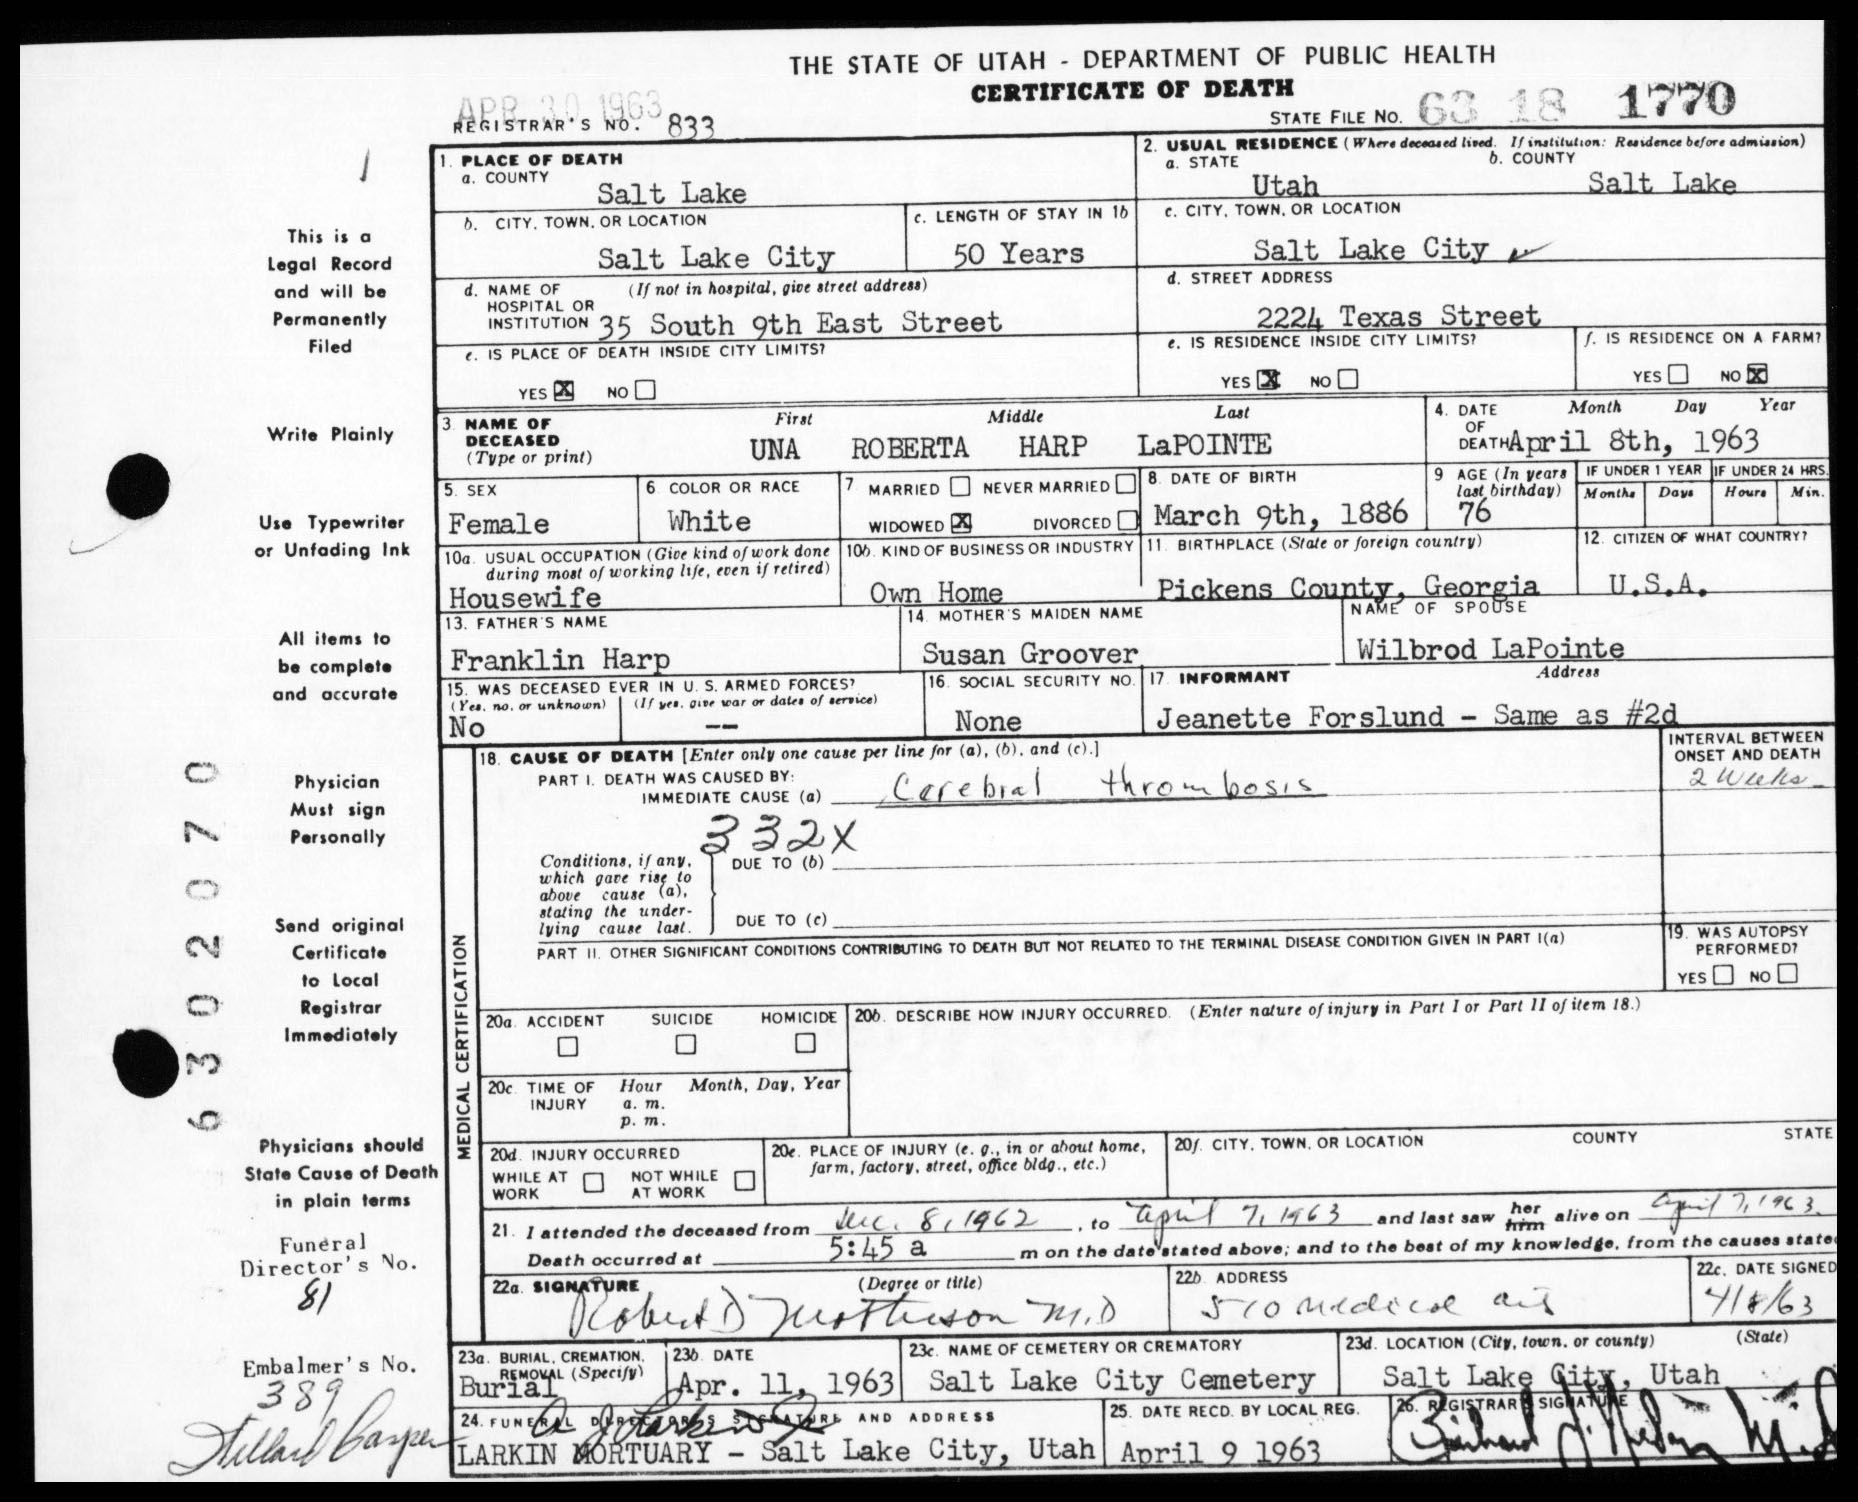 THE STATE OF UTAH - DEPARTMENT OF PUBLIC HEALTH
CERTIFICATE OF DEATH
APR 30 1963
REGISTRAR'S NO. 833
STATE FILE NO. 63 18 1770
1
This is a
Legal Record
and will be
Permanently
Filed
Write Plainly
Use Typewriter
or Unfading Ink
All items to
be complete
and accurate
Physician
Must sign
Personally
Send original
Certificate
to Local
Registrar
Immediately
Physicians should
State Cause of Death
in plain terms
Funeral
Director's No.
81
Embalmer's No.
389
6302070
1. PLACE OF DEATH
a. COUNTY
Salt Lake
2. USUAL RESIDENCE (Where deceased lived. If institution: Residence before admission)
a. STATE b. COUNTY
Utah Salt Lake
b. CITY, TOWN, OR LOCATION
Salt Lake City
c. LENGTH OF STAY IN 1b
50 Years
c. CITY, TOWN, OR LOCATION
Salt Lake City
d. NAME OF (If not in hospital, give street address)
HOSPITAL OR
INSTITUTION 35 South 9th East Street
d. STREET ADDRESS
2224 Texas Street
e. IS PLACE OF DEATH INSIDE CITY LIMITS?
YES X NO
e. IS RESIDENCE INSIDE CITY LIMITS?
YES X NO
f. IS RESIDENCE ON A FARM?
YES NO X
3. NAME OF First Middle Last
DECEASED
(Type or print) UNA ROBERTA HARP LaPOINTE
4. DATE Month Day Year
OF
DEATH April 8th, 1963
5. SEX
Female
6. COLOR OR RACE
White
7. MARRIED NEVER MARRIED
WIDOWED X DIVORCED
8. DATE OF BIRTH
March 9th, 1886
9 AGE (In years
last birthday)
76
IF UNDER 1 YEAR IF UNDER 24 HRS.
Months Days Hours Min.
10a. USUAL OCCUPATION (Give kind of work done
during most of working life, even if retired)
Housewife
10b. KIND OF BUSINESS OR INDUSTRY
Own Home
11. BIRTHPLACE (State or foreign country)
Pickens County, Georgia
12. CITIZEN OF WHAT COUNTRY?
U.S.A.
13. FATHER'S NAME
Franklin Harp
14. MOTHER'S MAIDEN NAME
Susan Groover
NAME OF SPOUSE
Wilbrod LaPointe
15. WAS DECEASED EVER IN U. S. ARMED FORCES?
(Yes, no, or unknown) (If yes, give war or dates of service)
No --
16. SOCIAL SECURITY NO.
None
17. INFORMANT Address
Jeanette Forslund - Same as #2d
MEDICAL CERTIFICATION
18. CAUSE OF DEATH [Enter only one cause per line for (a), (b), and (c).]
PART I. DEATH WAS CAUSED BY:
IMMEDIATE CAUSE (a) Cerebral thrombosis
INTERVAL BETWEEN
ONSET AND DEATH
2 Weeks
332X
Conditions, if any,
which gave rise to
above cause (a),
stating the under-
lying cause last.
DUE TO (b)
DUE TO (c)
PART II. OTHER SIGNIFICANT CONDITIONS CONTRIBUTING TO DEATH BUT NOT RELATED TO THE TERMINAL DISEASE CONDITION GIVEN IN PART I(a)
19. WAS AUTOPSY
PERFORMED?
YES NO
20a. ACCIDENT SUICIDE HOMICIDE
20b. DESCRIBE HOW INJURY OCCURRED. (Enter nature of injury in Part I or Part II of item 18.)
20c. TIME OF Hour Month, Day, Year
INJURY a. m.
p. m.
20d. INJURY OCCURRED
WHILE AT NOT WHILE
WORK AT WORK
20e. PLACE OF INJURY (e. g., in or about home,
farm, factory, street, office bldg., etc.)
20f. CITY, TOWN, OR LOCATION COUNTY STATE
21. I attended the deceased from Dec. 8, 1962, to April 7, 1963 and last saw her him alive on April 7, 1963.
Death occurred at 5:45 a m on the date stated above; and to the best of my knowledge, from the causes state
22a. SIGNATURE (Degree or title)
Robert D M.D
22b. ADDRESS
510 Medical Arts
22c. DATE SIGNED
4/8/63
23a. BURIAL, CREMATION,
REMOVAL (Specify)
Burial
23b. DATE
Apr. 11, 1963
23c. NAME OF CEMETERY OR CREMATORY
Salt Lake City Cemetery
23d. LOCATION (City, town, or county) (State)
Salt Lake City, Utah
24. FUNERAL DIRECTOR'S SIGNATURE AND ADDRESS
LARKIN MORTUARY - Salt Lake City, Utah
25. DATE RECD. BY LOCAL REG.
April 9 1963
26. REGISTRAR'S SIGNATURE